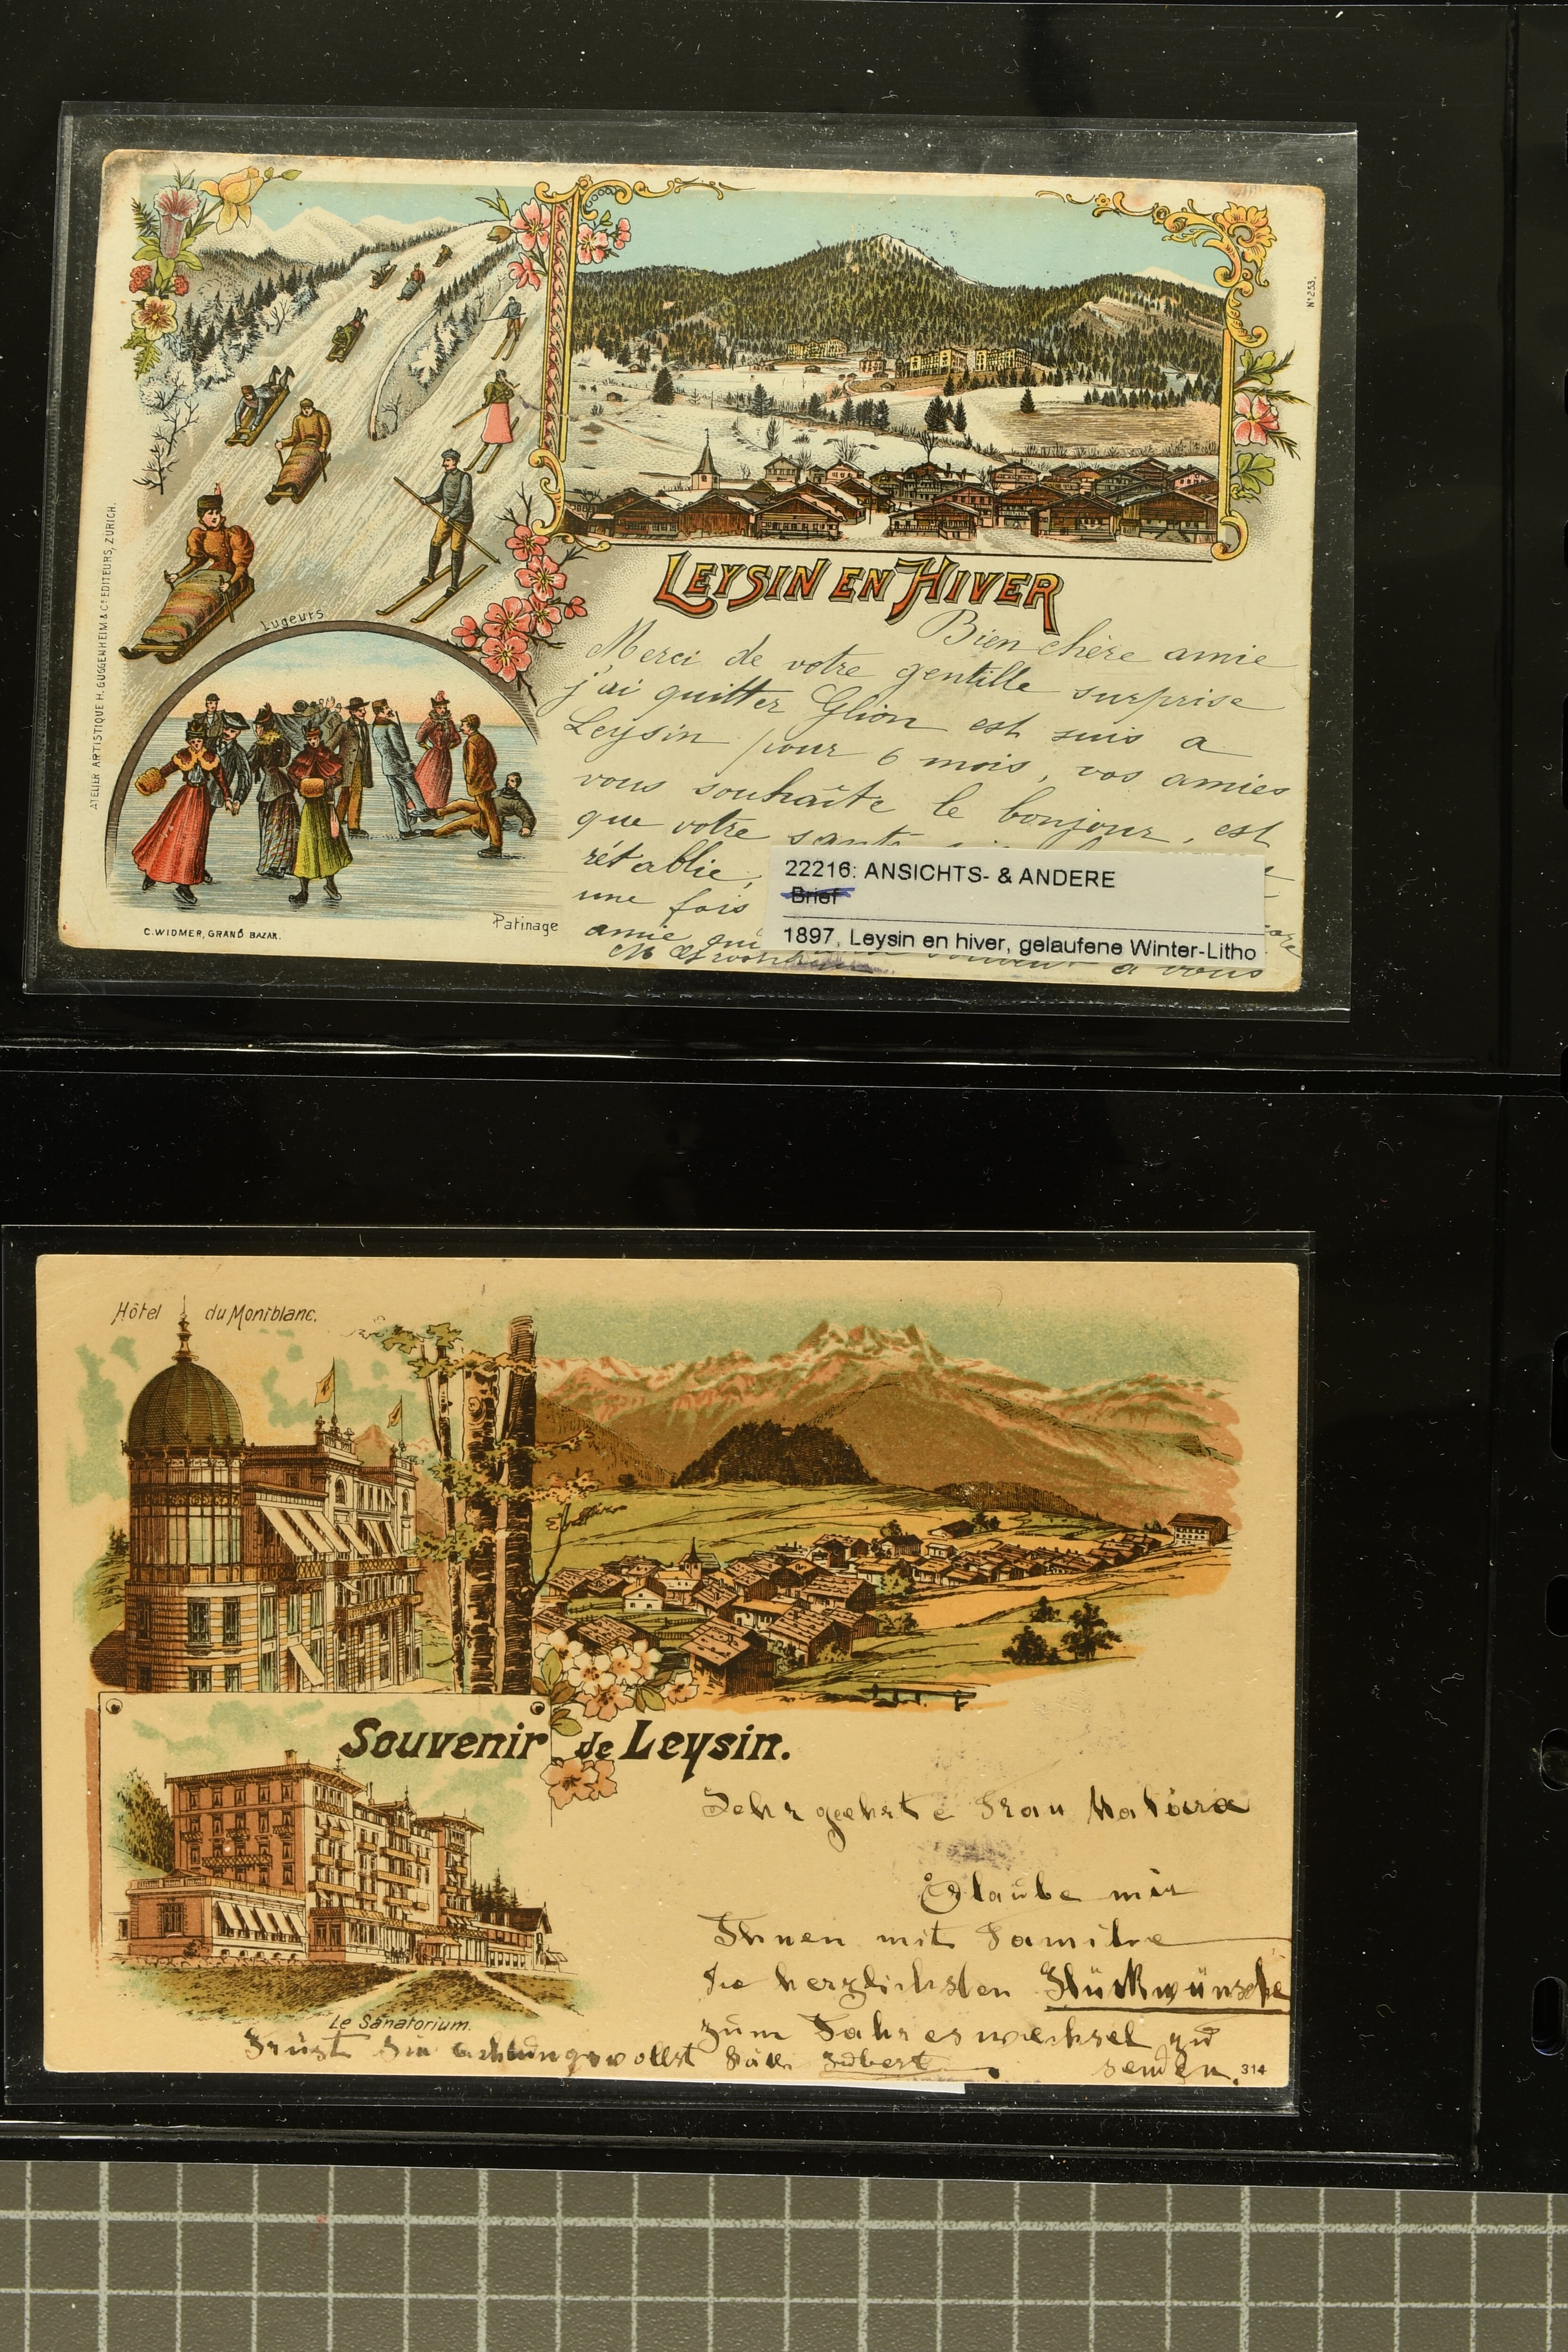 Nº 253.
ATELIER ARTISTIQUE H. GUGGENHEIM & Cº EDITEURS, ZÜRICH.
Lugeurs
Patinage
C. WIDMER, GRAND BAZAR.
LEYSIN EN HIVER
Bien chère amie
Merci de votre gentille surprise
j'ai quitter Glion est suis a
Leysin pour 6 mois, vos amies
vous souhaîte le bonjour, est
que votre santé
rétablie,
une fois
amie qui
a vous
22216: ANSICHTS- & ANDERE
Brief
1897, Leysin en hiver, gelaufene Winter-Litho
Hôtel du Montblanc.
Souvenir de Leysin.
Le Sanatorium.
Sehr geehrte Frau
Erlaube mir
Ihnen mit Familie
die herzlichsten Glückwünsche
zum Jahreswechsel zu
senden.
Grüst Sie achtungsvollst
314